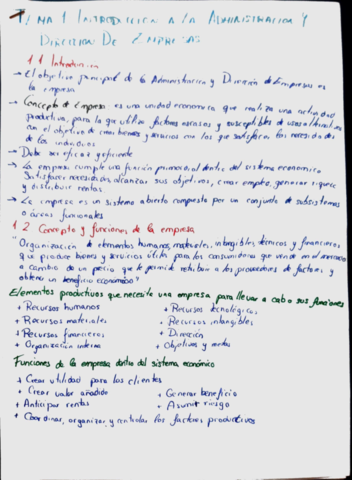 TEMA 1 INTRODUCCION A LA ADMINISTRACION Y
DIRECCION DE EMPRESAS
1.1 Introduccion
→ El objetivo principal de la Administracion y Direccion de Empresas es
la empresa
→ Concepto de Empresa es una unidad economica que realiza una actividad
productiva, para la que utiliza factores escasos y susceptibles de usos alternativos
con el objetivo de crear bienes y servicios con los que satisfacer las necesidades
de los individuos
→ Debe ser eficaz y eficiente
→ La empresa cumple una función primordial dentro del sistema economico
satisfacer necesidades, alcanzar sus objetivos, crear empleo, generar riqueza
y distribuir rentas
→ La empresa es un sistema abierto compuesto por un conjunto de subsistemas
o áreas funcionales
1.2 Concepto y funciones de la empresa
"Organización de elementos humanos, materiales, intangibles, técnicos y financieros
que produce bienes y servicios útiles para los consumidores que vende en el mercado
a cambio de un precio que le permite retribuir a los proveedores de factores y
obtener un beneficio económico"
Elementos productivos que necesita una empresa para llevar a cabo sus funciones
+ Recursos humanos + Recursos tecnológicos
+ Recursos materiales + Recursos intangibles
+ Recursos financieros + Dirección
+ Organización interna + Objetivos y metas
Funciones de la empresa dentro del sistema económico
+ Crear utilidad para los clientes
+ Crear valor añadido + Generar beneficio
+ Anticipar rentas + Asumir riesgo
+ Coordinar, organizar, y controlar los factores productivos